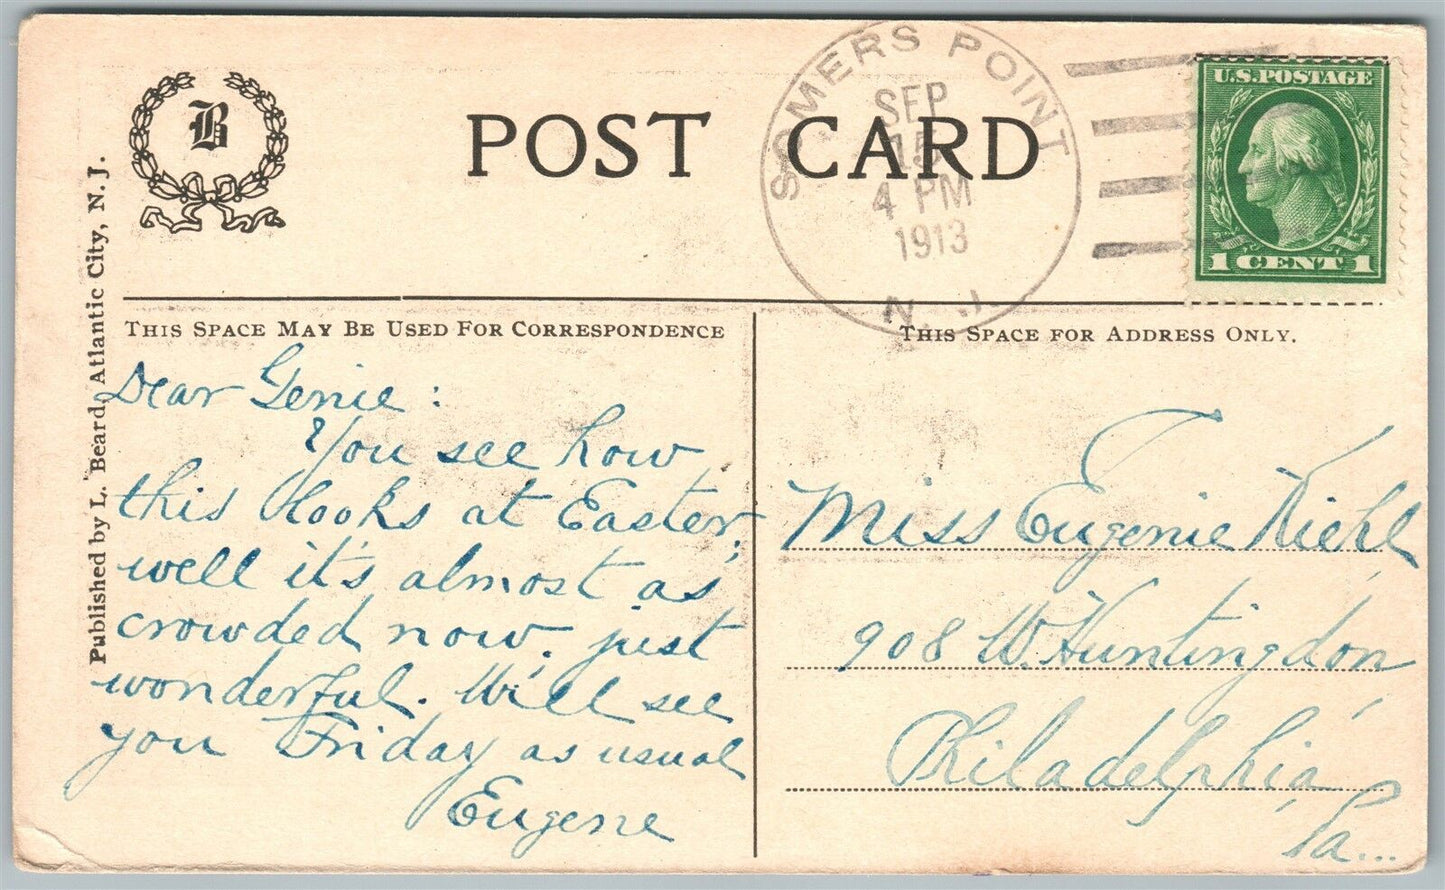 B
POST CARD
SOMERS POINT
SEP
15
4 PM
1913
N. J.
U.S. POSTAGE
1 CENT 1
Published by L. Beard, Atlantic City, N. J.
THIS SPACE MAY BE USED FOR CORRESPONDENCE
Dear Genie:
You see how
this looks at Easter,
well it's almost as
crowded now. just
wonderful. Will see
you Friday as usual
Eugene
THIS SPACE FOR ADDRESS ONLY.
Miss Eugenie Kiehl,
908 W. Huntingdon,
Philadelphia,
Pa...